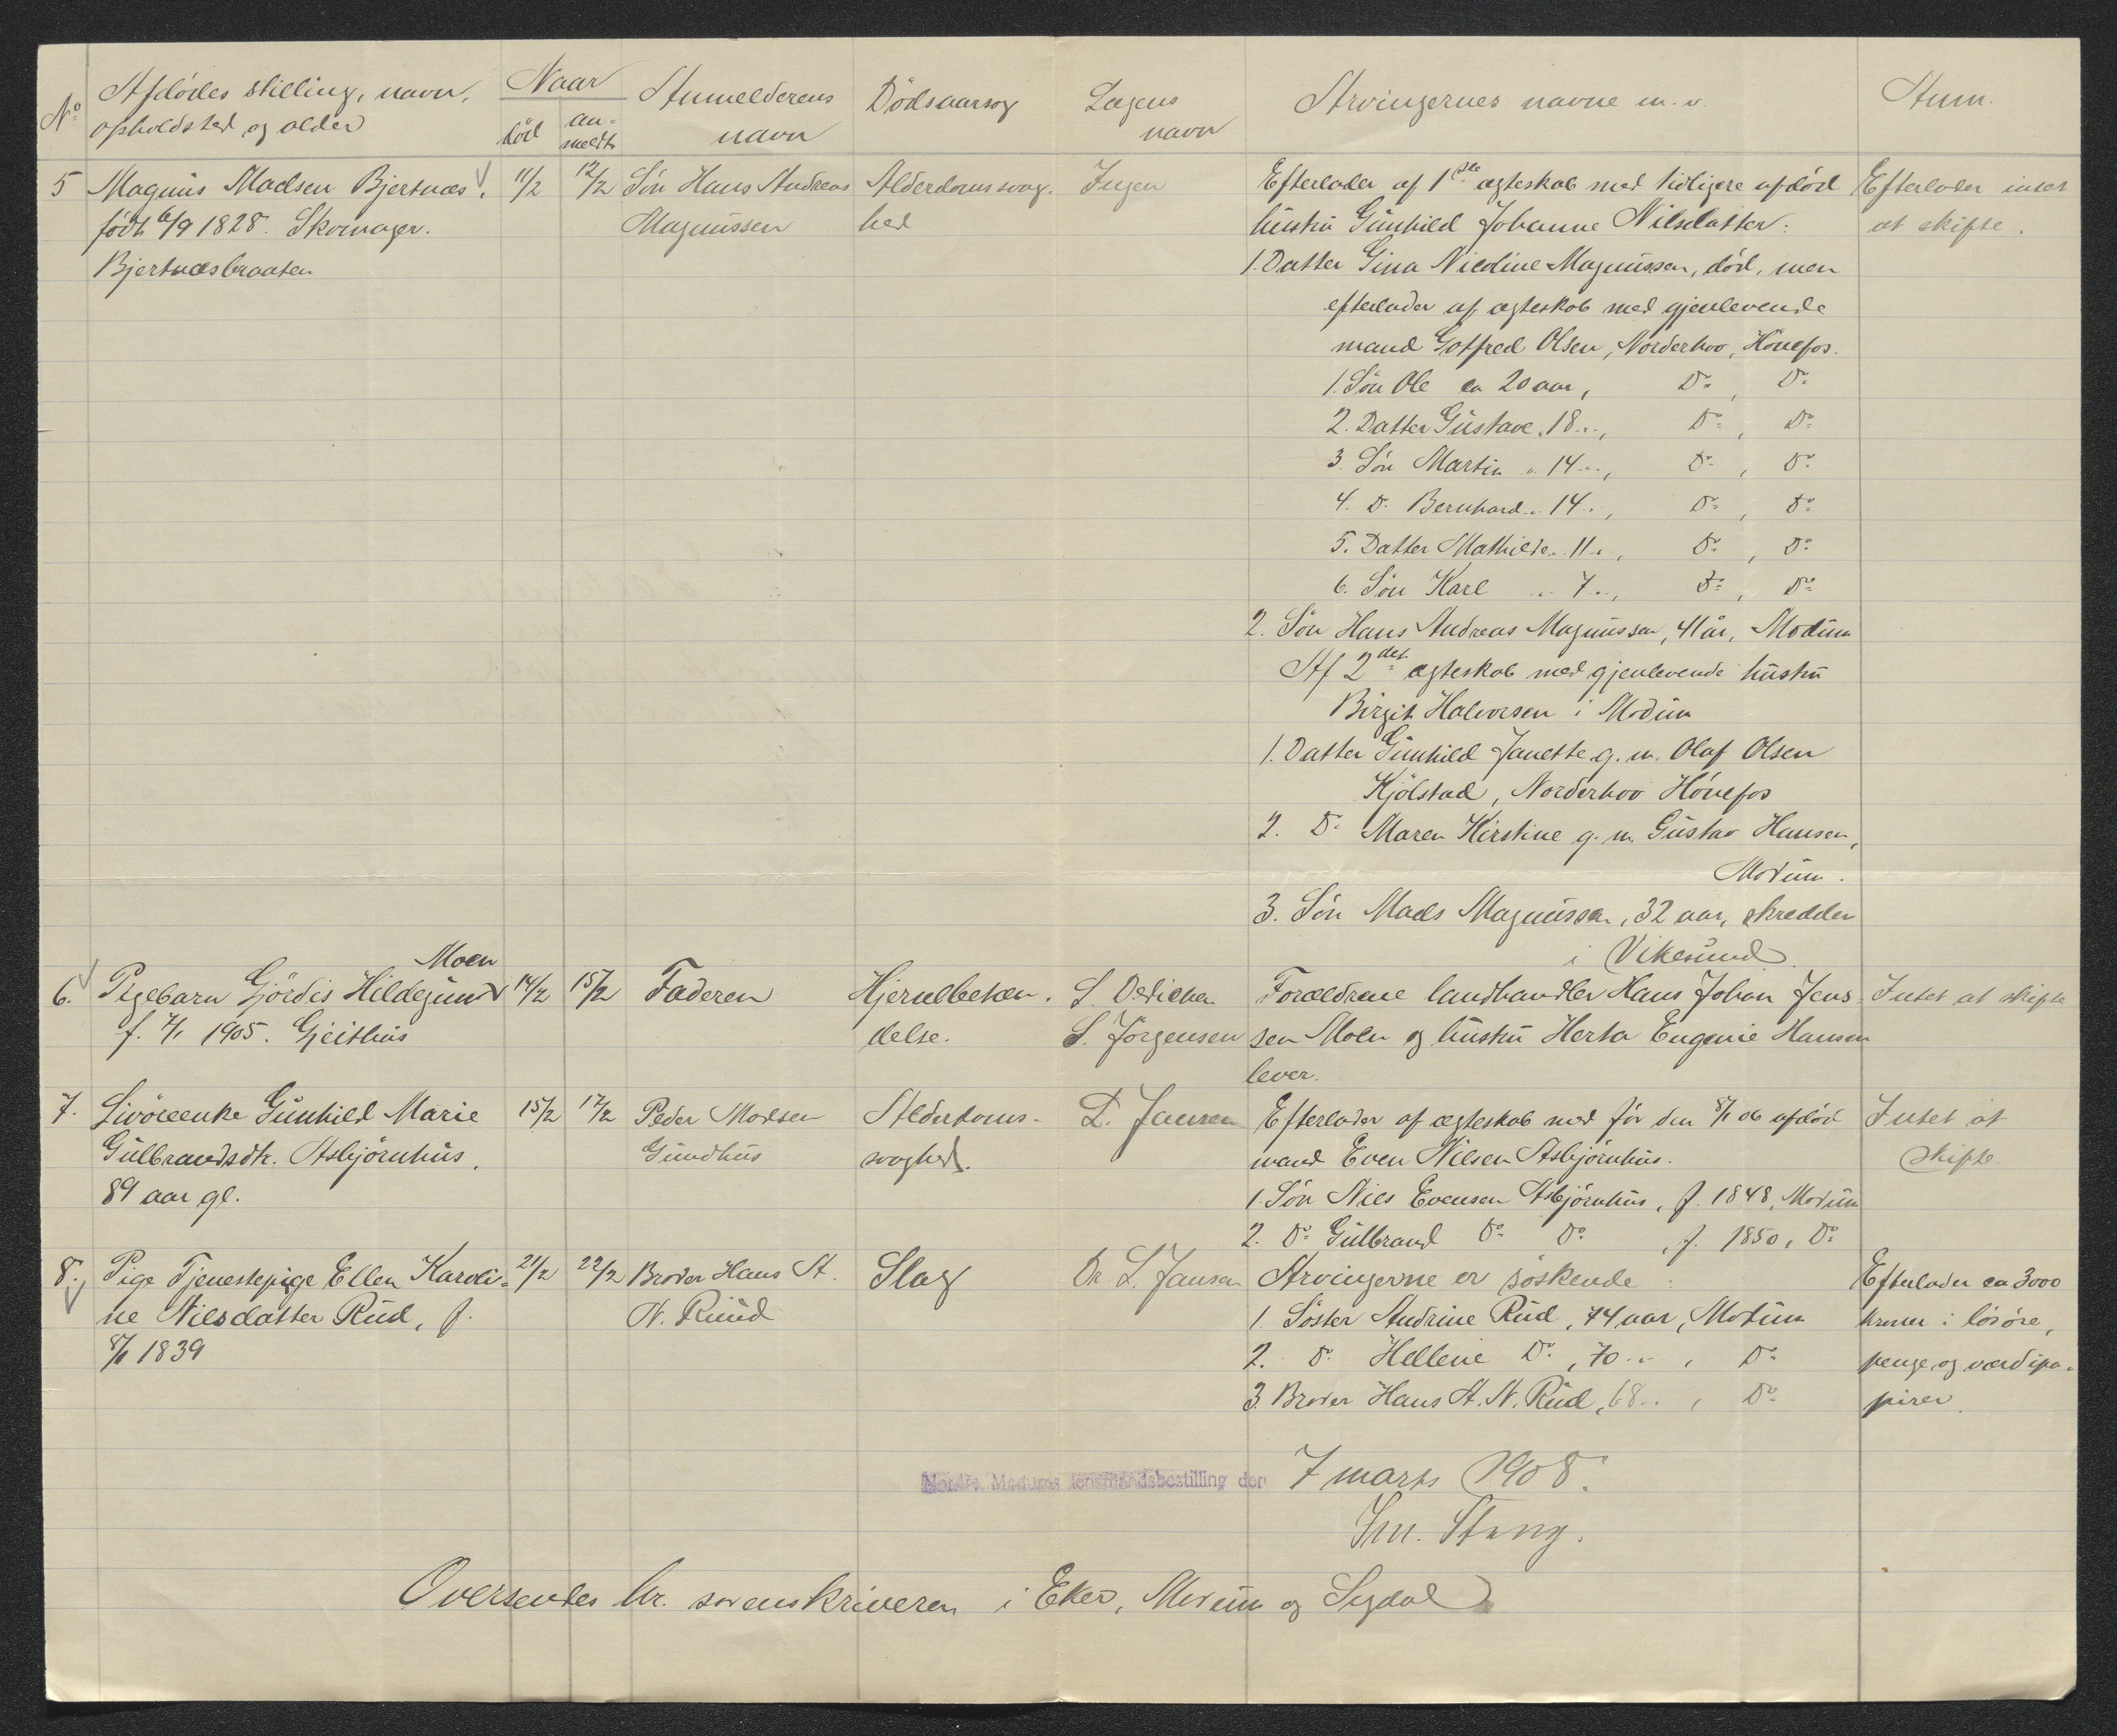 No Afdödes stilling, navn, opholdsted og alder Naar död anmeldt Anmelderens navn Dödsaarsag Lægens navn Arvingernes navne m. v. Anm.
5 Magnus Madsen Bjertnæs. 11/2 12/2 Sön Hans Andreas Alderdomssvag- Ingen Efterlader af 1ste ægteskab med tidligere afdöd Efterlader intet
födt 6/9 1828. Skomager. Magnussen hed hustru Gunhild Johanne Nilsdatter: at skifte.
Bjertnæsbraaten 1. Datter Gina Nicoline Magnussen, död, men
efterlader af ægteskab med gjenlevende
mand Gotfred Olsen, Norderhov, Hönefos.
1. Sön Ole ca 20 aar, Do, Do
2. Datter Gustave „ 18 „ „, Do, Do
3. Sön Martin „ 14 „ „, Do, Do
4. Do Bernhard „ 14 „, Do, Do
5. Datter Mathilde „ 11 „, Do, Do
6. Sön Karl „ 7 „, Do, Do
2. Sön Hans Andreas Magnussen, 41 år, Modum
Af 2det ægteskab med gjenlevende hustru
Birgit Halvorsen i Modum
1. Datter Gunhild Janette g. m. Olaf Olsen
Kjölstad, Norderhov Hönefos
2. Do Maren Kirstine g. m. Gustav Hansen,
Modum.
3. Sön Mads Magnussen, 32 aar, skredder
i Vikesund.
Moen
6. Pigebarn Gjördis Hildegund 14/2 15/2 Faderen Hjernebetæn- Forældrene landhandler Hans Johan Jens- Intet at skifte
f. 7/1 1905. Gjeithus delse. S. Jörgensen sen Moen og hustru Herta Eugenie Hansen
lever.
7. Livöreenke Gunhild Marie 15/2 17/2 Peder Madsen Alderdoms- L. Jansen Efterlader af ægteskab med för den 8/1 06 afdöd Intet at
Gulbrandsdtr. Asbjörnhus, Gundhus svaghed. mand Even Nilsen Asbjörnhus. skifte.
89 aar gl. 1. Sön Nils Evensen Asbjörnhus, f. 1848, Modum
2. Do Gulbrand Do Do, f. 1850, Do
8. Pige Tjenestepige Ellen Karoli- 21/2 22/2 Broder Hans A. Slag Dr. L. Jansen Arvingerne er söskende: Efterlader ca 3000
ne Nilsdatter Rud, f. N. Ruud 1. Söster Andrine Rud, 74 aar, Modum kroner i lösöre,
8/1 1839 2. Do Hellene Do, 70 „ „, Do penge og værdipa-
3. Broder Hans A. N. Rud, 68 „, Do pirer.
Nordre Modums lensmandsbestilling den 7 marts 1908.
Stang.
Oversendes hr. sorenskriveren i Eker, Modum og Sigdal